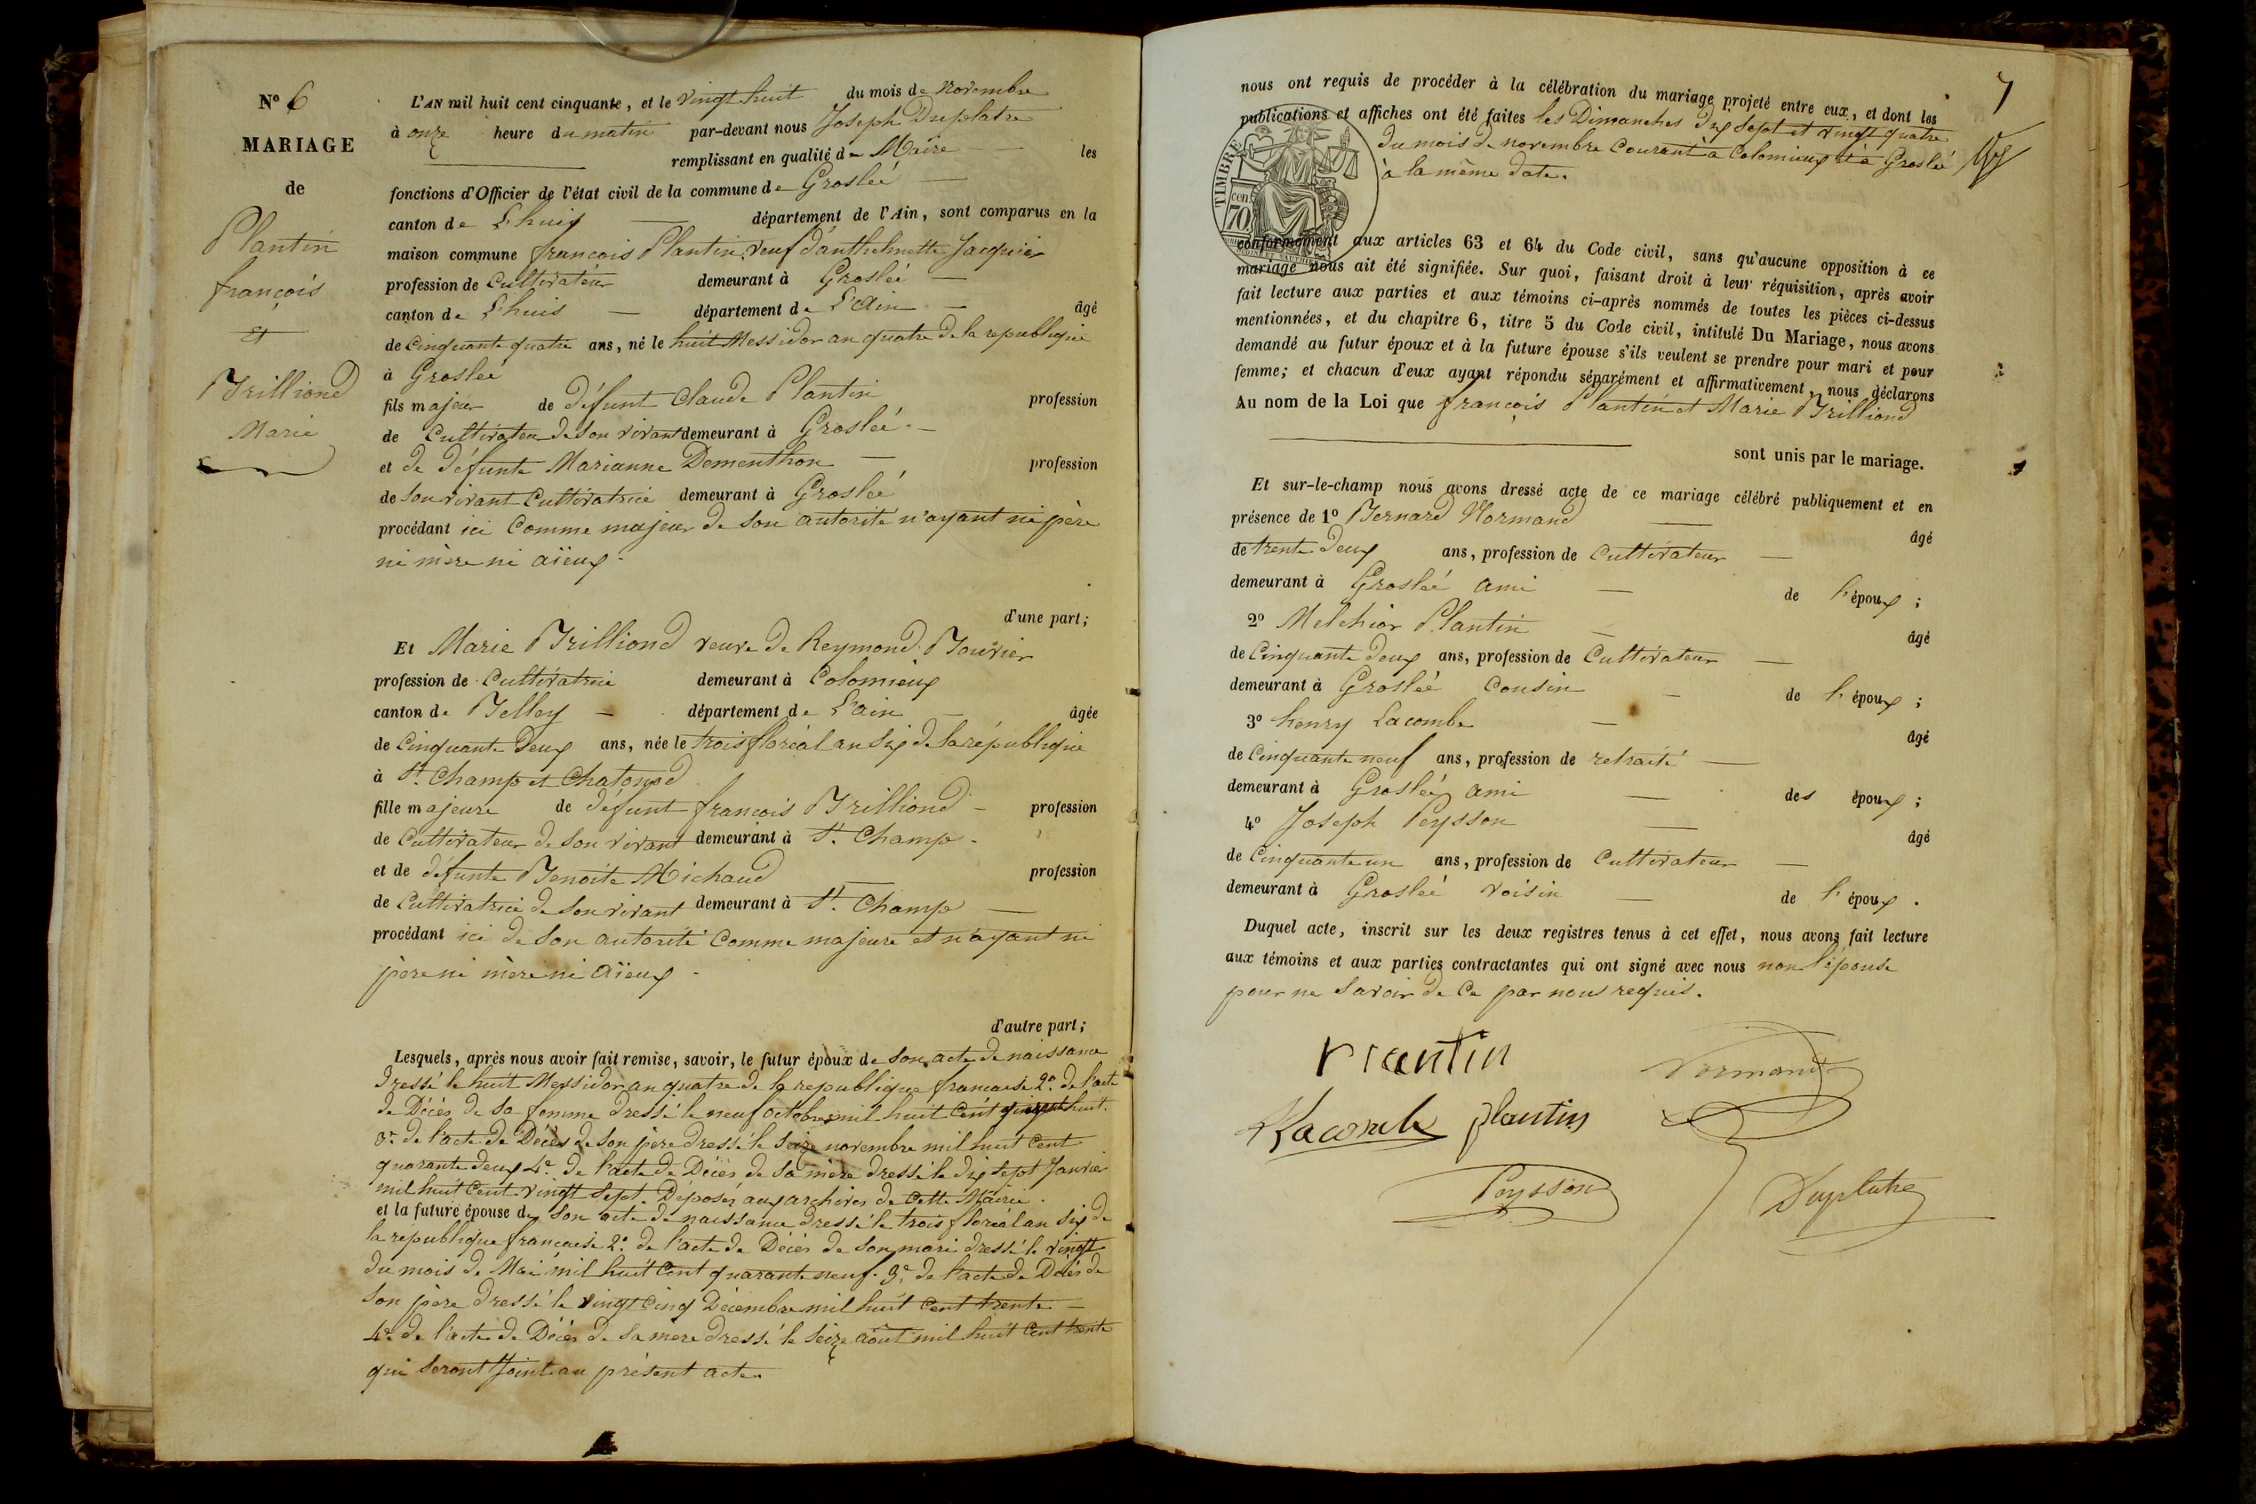 N° 6
MARIAGE
de
Plantin
françois
et
Brilliond
Marie
L'AN mil huit cent cinquante, et le vingt huit du mois de novembre
à onze heure du matin par-devant nous Joseph Duplatre
remplissant en qualité de Maire les
fonctions d'Officier de l'état civil de la commune de Groslée
canton de Lhuis département de l'Ain, sont comparus en la
maison commune françois Plantin, veuf d'anthelmette Jacquier
profession de Cultivateur demeurant à Groslée
canton de Lhuis département de L'Ain âgé
de Cinquante quatre ans, né le huit Messidor an quatre de la republique
à Groslée
fils majeur de défunt Claude Plantin profession
de Cultivateur de son vivant demeurant à Groslée
et de défunte Marianne Dementhon profession
de son vivant Cultivatrice demeurant à Groslée
procédant ici Comme majeur de son autorité n'ayant ni père
ni mère ni aïeux.
d'une part;
Et Marie Brilliond veuve de Reymond Bouvier
profession de Cultivatrice demeurant à Colomieux
canton de Belley département de L'ain âgée
de Cinquante Deux ans, née le trois floréal an Six de la république
à St. Champ et Chatonod
fille majeure de défunt françois Brilliond profession
de Cultivateur de son vivant demeurant à St. Champ
et de défunte Benoite Michaud profession
de Cultivatrice de son vivant demeurant à St. Champ
procédant ici de son autorité Comme majeure et n'ayant ni
père ni mère ni Aïeux
d'autre part;
Lesquels, après nous avoir fait remise, savoir, le futur époux de son acte de naissance
dressé le huit Messidor an quatre de la republique francaise 2°. de l'acte
de Décès de sa femme dressé le neuf octobre mil huit Cent huit.
3°. de l'acte de Décès de son père dressé le Seize novembre mil huit Cent
quarante deux 4°. de l'acte de Décès de sa mère dressé le dix sept Janvier
mil huit Cent vingt sept. Déposés aux archives de cette Mairie.
et la future épouse de son acte de naissance dressé le trois floréal an Six de
la republique francaise 2°. de l'acte de Décès de son mari dressé le vingt
du mois de Mai mil huit Cent quarante neuf. 3°. de l'acte de Décès de
son père dressé le vingt Cinq Décembre mil huit Cent trente
4°. de l'acte de Décès de sa mere dressé le Seize août mil huit Cent trente
qui seront Joint au présent acte.
7
nous ont requis de procéder à la célébration du mariage projeté entre eux, et dont les
publications et affiches ont été faites les Dimanches Dix Sept et vingt quatre
du mois de novembre Courant à Colomieux et à Groslée
à la même date.
TIMBRE
cen
70
conformément aux articles 63 et 64 du Code civil, sans qu'aucune opposition à ce
mariage nous ait été signifiée. Sur quoi, faisant droit à leur réquisition, après avoir
fait lecture aux parties et aux témoins ci-après nommés de toutes les pièces ci-dessus
mentionnées, et du chapitre 6, titre 5 du Code civil, intitulé Du Mariage, nous avons
demandé au futur époux et à la future épouse s'ils veulent se prendre pour mari et pour
femme; et chacun d'eux ayant répondu séparément et affirmativement, nous déclarons
Au nom de la Loi que françois Plantin et Marie Brilliond
sont unis par le mariage.
Et sur-le-champ nous avons dressé acte de ce mariage célébré publiquement et en
présence de 1° Bernard Normand âgé
de trente Deux ans, profession de Cultivateur
demeurant à Groslée ami de l'époux;
2° Melchior Plantin âgé
de Cinquante Deux ans, profession de Cultivateur
demeurant à Groslée Cousin de l'époux;
3° henry Lacombe âgé
de Cinquante neuf ans, profession de retraité
demeurant à Groslée ami des époux;
4° Joseph Peysson âgé
de Cinquante un ans, profession de Cultivateur
demeurant à Groslée voisin de l'époux.
Duquel acte, inscrit sur les deux registres tenus à cet effet, nous avons fait lecture
aux témoins et aux parties contractantes qui ont signé avec nous non l'épouse
pour ne savoir de Ce par nous requis.
Plantin Normand
Lacombe plantin
Peysson Duplatre